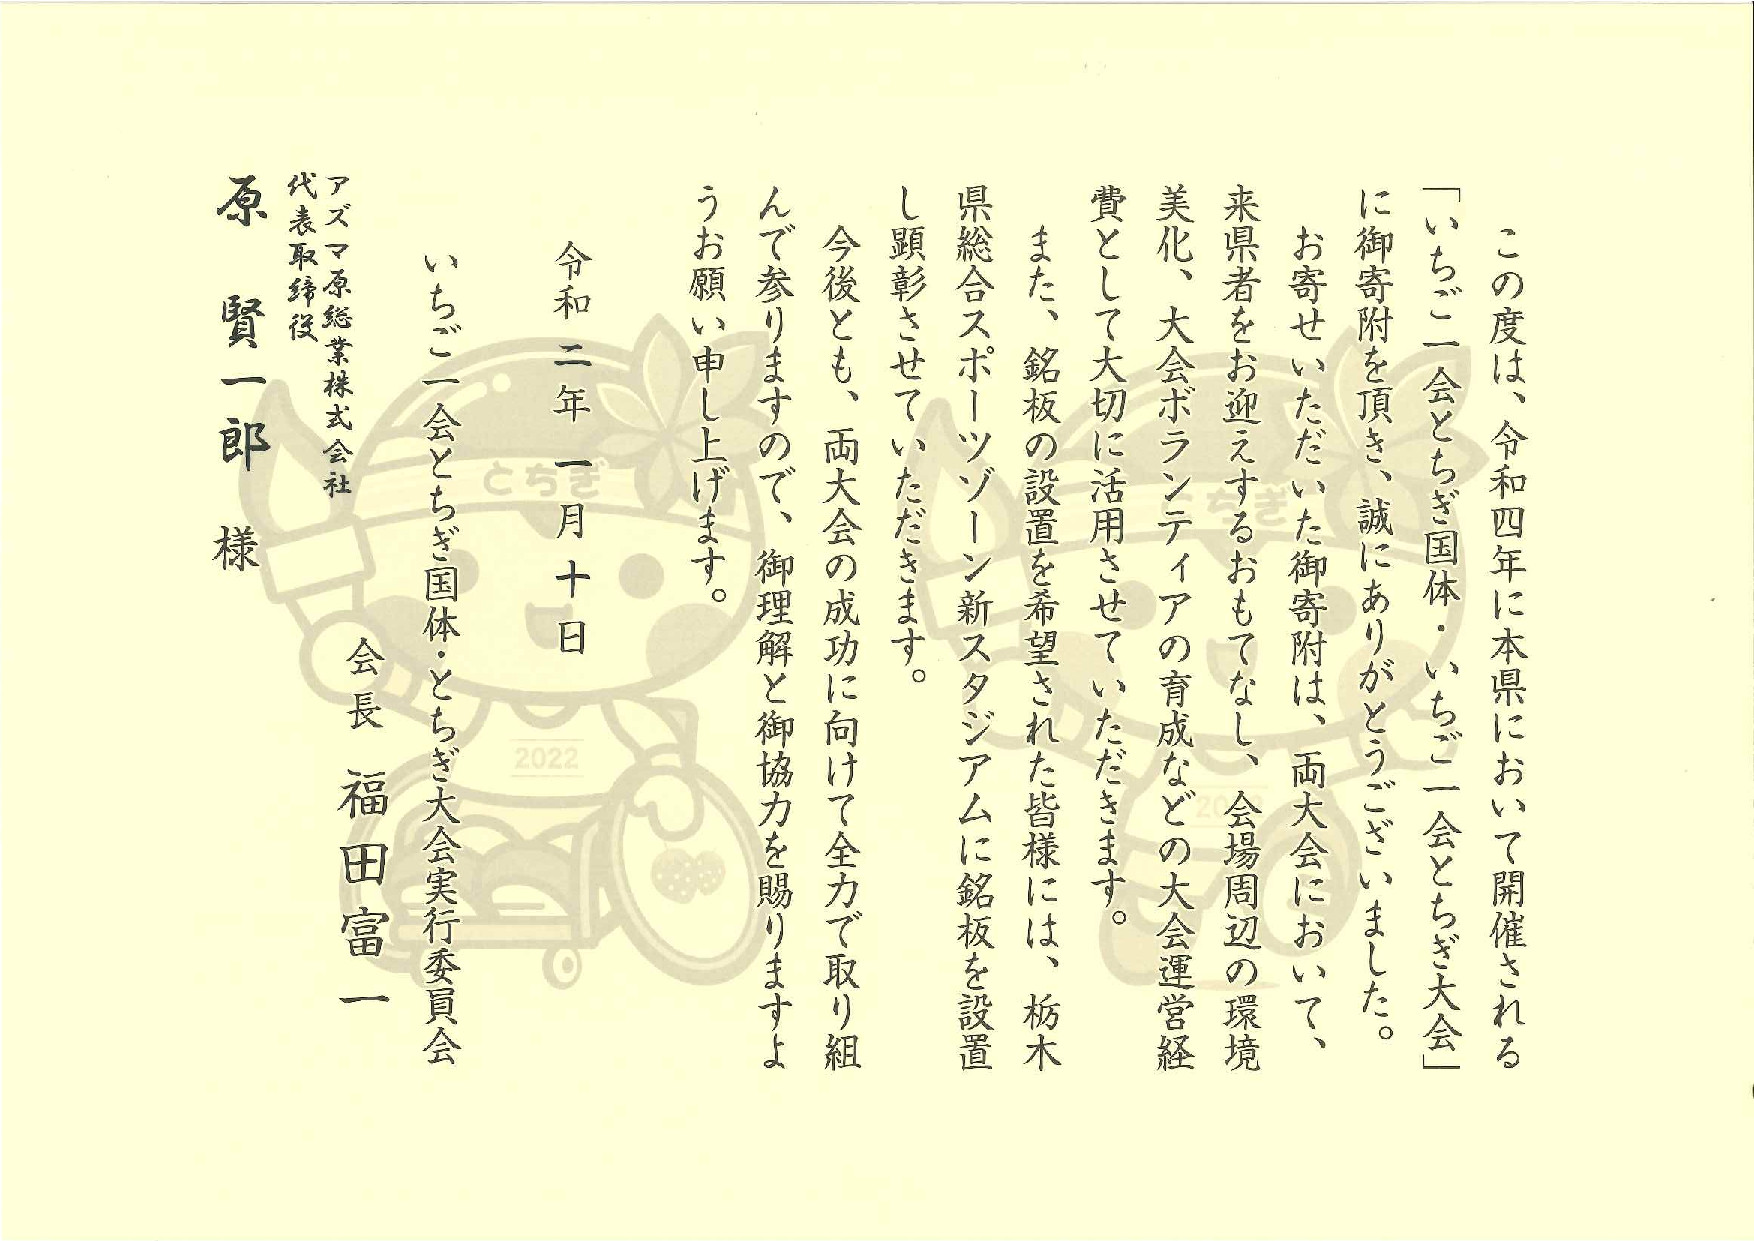 この度は、令和四年に本県において開催される
「いちご一会とちぎ国体・いちご一会とちぎ大会」
に御寄附を頂き、誠にありがとうございました。
お寄せいただいた御寄附は、両大会において、
来県者をお迎えするおもてなし、会場周辺の環境
美化、大会ボランティアの育成などの大会運営経
費として大切に活用させていただきます。
また、銘板の設置を希望された皆様には、栃木
県総合スポーツゾーン新スタジアムに銘板を設置
し顕彰させていただきます。
今後とも、両大会の成功に向けて全力で取り組
んで参りますので、御理解と御協力を賜りますよ
うお願い申し上げます。
令和二年一月十日
いちご一会とちぎ国体・とちぎ大会実行委員会
会長 福田富一
アズマ原総業株式会社
代表取締役
原 賢一郎 様
とちぎ
2022
とちぎ
2022